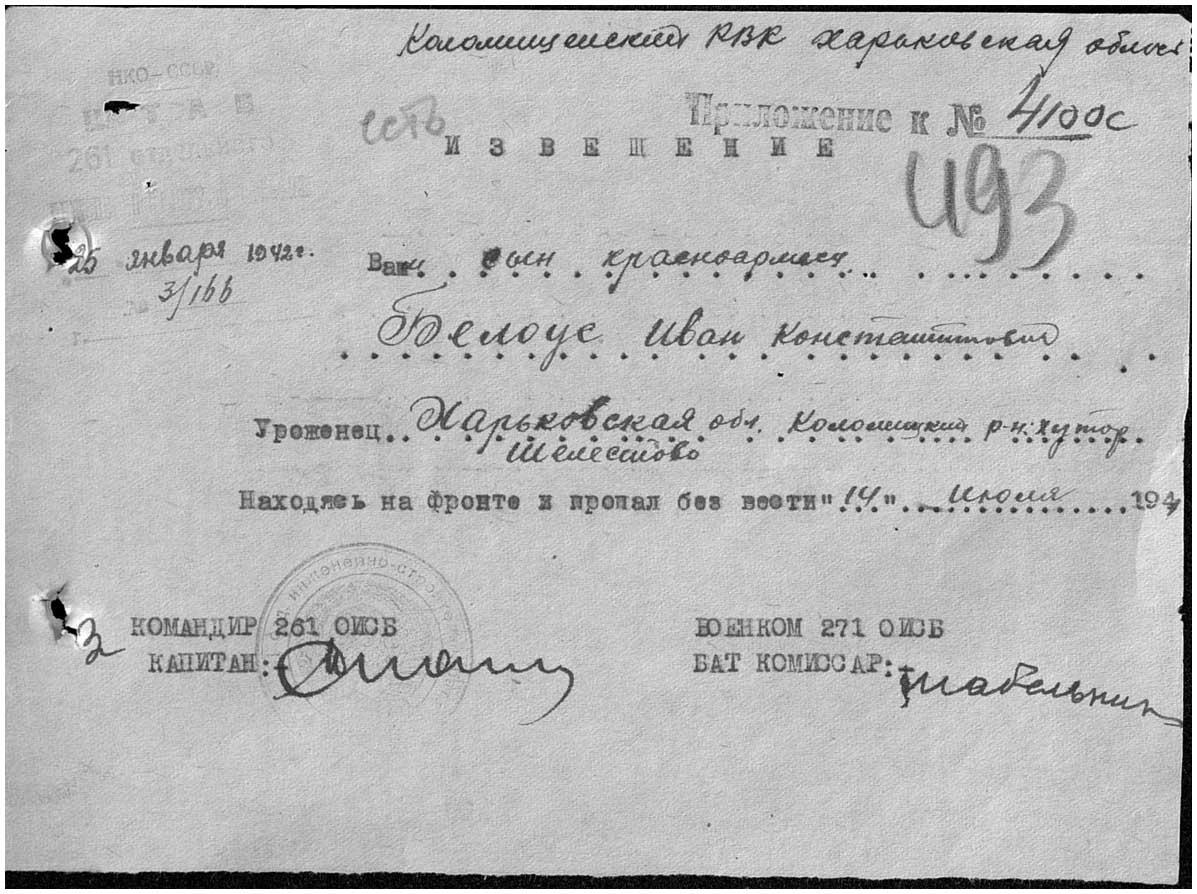 Коломищенский РВК харьковская област
НКО-СССР
ШТАБ
261 отдельного
Приложение к № 4100с
есть
ИЗВЕЩЕНИЕ
493
25 января 1942г.
3/166
Ваш сын красноармеец
Белоус Иван Константинович
Уроженец Харьковская обл. Коломицкий р-н. хутор
Шелестово
Находясь на фронте и пропал без вести "14" июля 1941
инженерно-строи
КОМАНДИР 261 ОИСБ
ВОЕНКОМ 271 ОИСБ
КАПИТАН:
БАТ КОМИССАР: